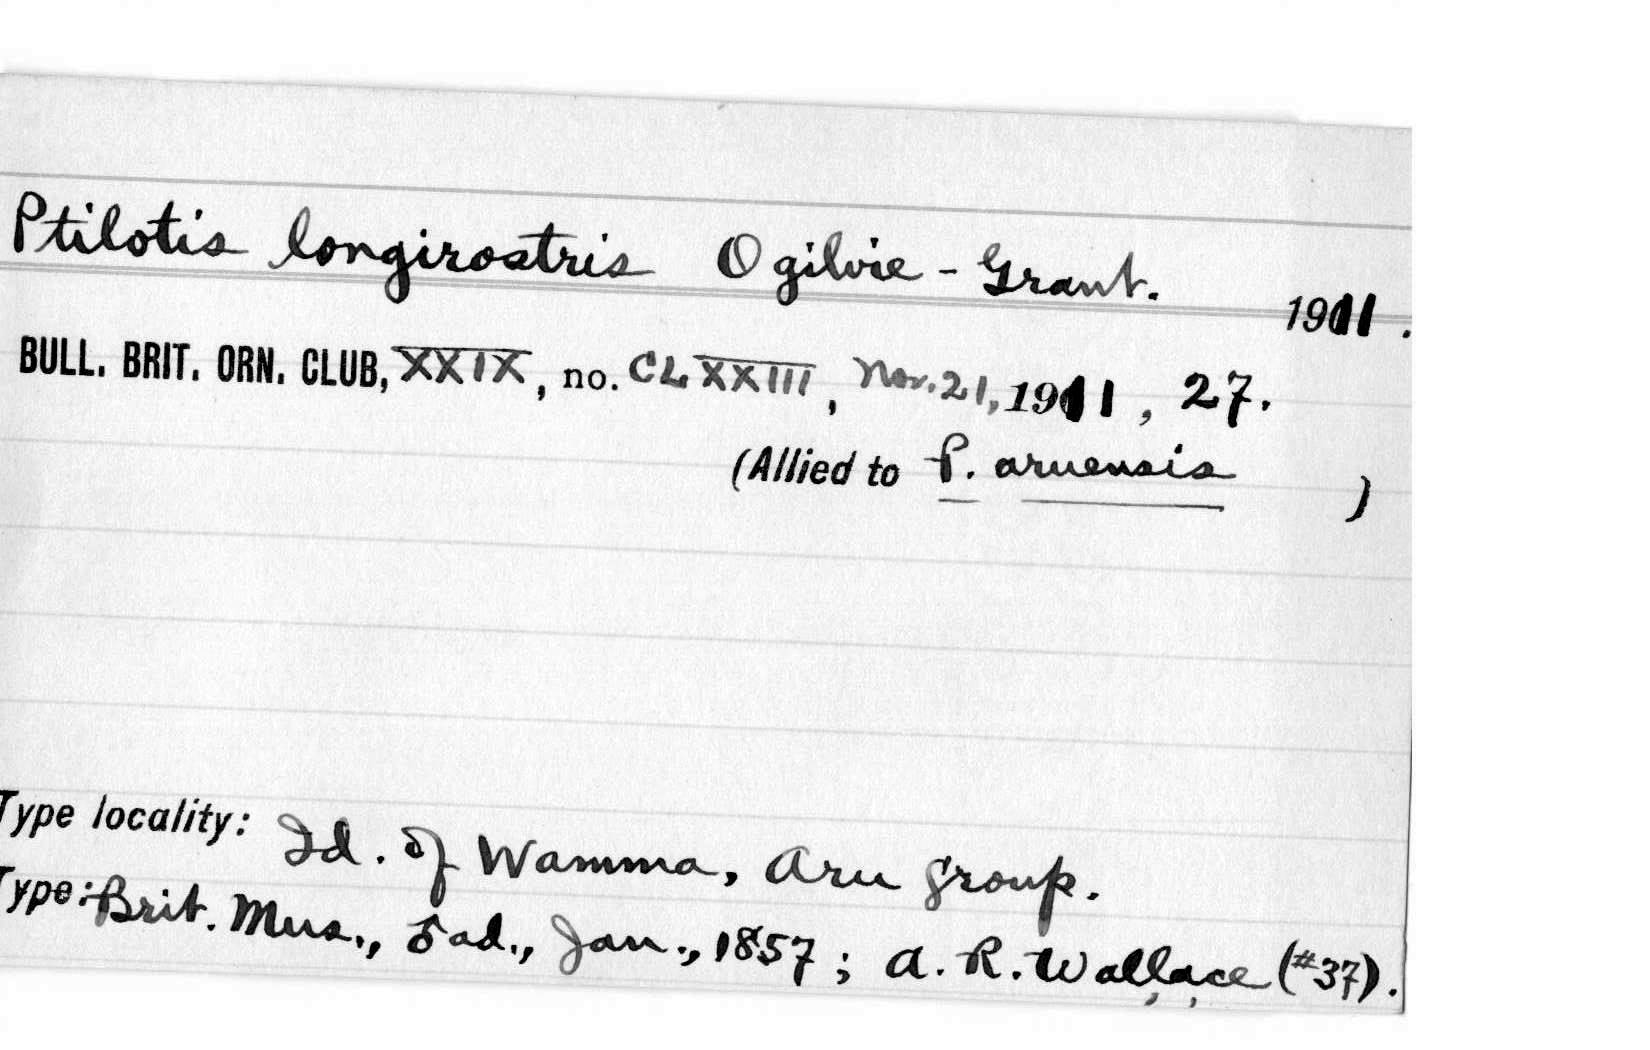 Ptilotis longirostris Ogilvie-Grant. 1911.
BULL. BRIT. ORN. CLUB, XXIX, no. CLXXIII, Nov. 21, 1911, 27.
(Allied to P. aruensis )
Type locality: Id. of Wamma, Aru group.
Type: Brit. Mus., ♂ ad., Jan., 1857; A. R. Wallace (#37).